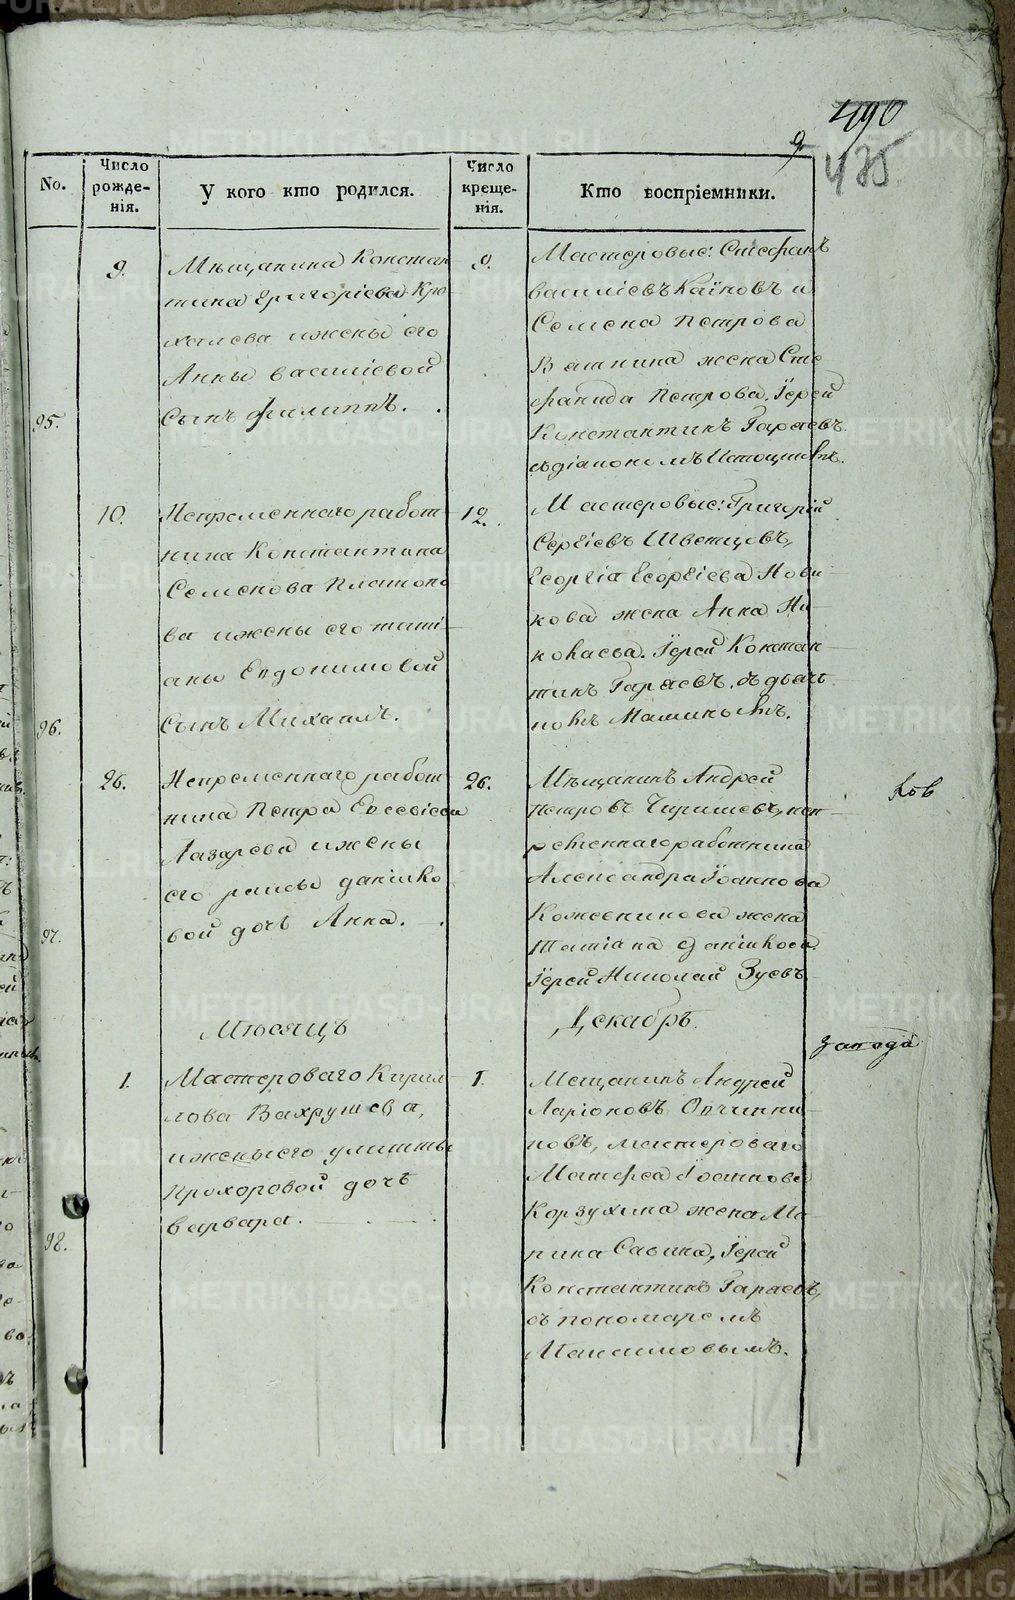 490
9.
435
No.
Число рожде-нія.
У кого кто родился.
Число креще-нія.
Кто воспріемники.
95.
9.
Мѣщанина Констан
тина Григоріева Кро
халева и жены его
Анны Василіевой
Сынъ Филиппъ.
9.
Мастеровые: Стефанъ
Василіевъ Каиновъ и
Семена Петрова
Вятнина жена Сте
фанида Петрова. Іерей
Константинъ Гаряевъ
съ діакономъ
96.
10.
Непременнаго работ
ника Константина
Семенова Платоно
ва и жены его Тати
аны Евдокимовой
Сынъ Михаилъ.
12.
Мастеровые: Григорій
Сергіевъ Швецовъ,
Георгія Георгіева Нови
кова жена Анна Ни
колаева. Іерей Констан
тинъ Гаряевъ, съ дьяч
комъ
97.
26.
Непременнаго работ
ника Петра Евсевіева
Лазарева и жены
его Раисы Данило
вой дочь Анна.
26.
Мѣщанинъ Андрей
Петровъ
работника
Александра Іоаннова
Кожевникова жена
Татіана Данилова.
Іерей Николай Зуевъ.
ков
Мѣсяцъ
Декабрь.
98.
1.
Мастероваго Кирил
лова Вахрушева,
и жены его Улитты
Прохоровой дочь
Варвара.
1.
Мещанинъ Андрей
Ларіоновъ Овчинни
ковъ, мастероваго
Матфеа
Корзухина жена Ма
Савина, Іерей
Константинъ Гаряевъ,
съ пономаремъ
Максимовымъ.
METRIKI.GASO-URAL.RU